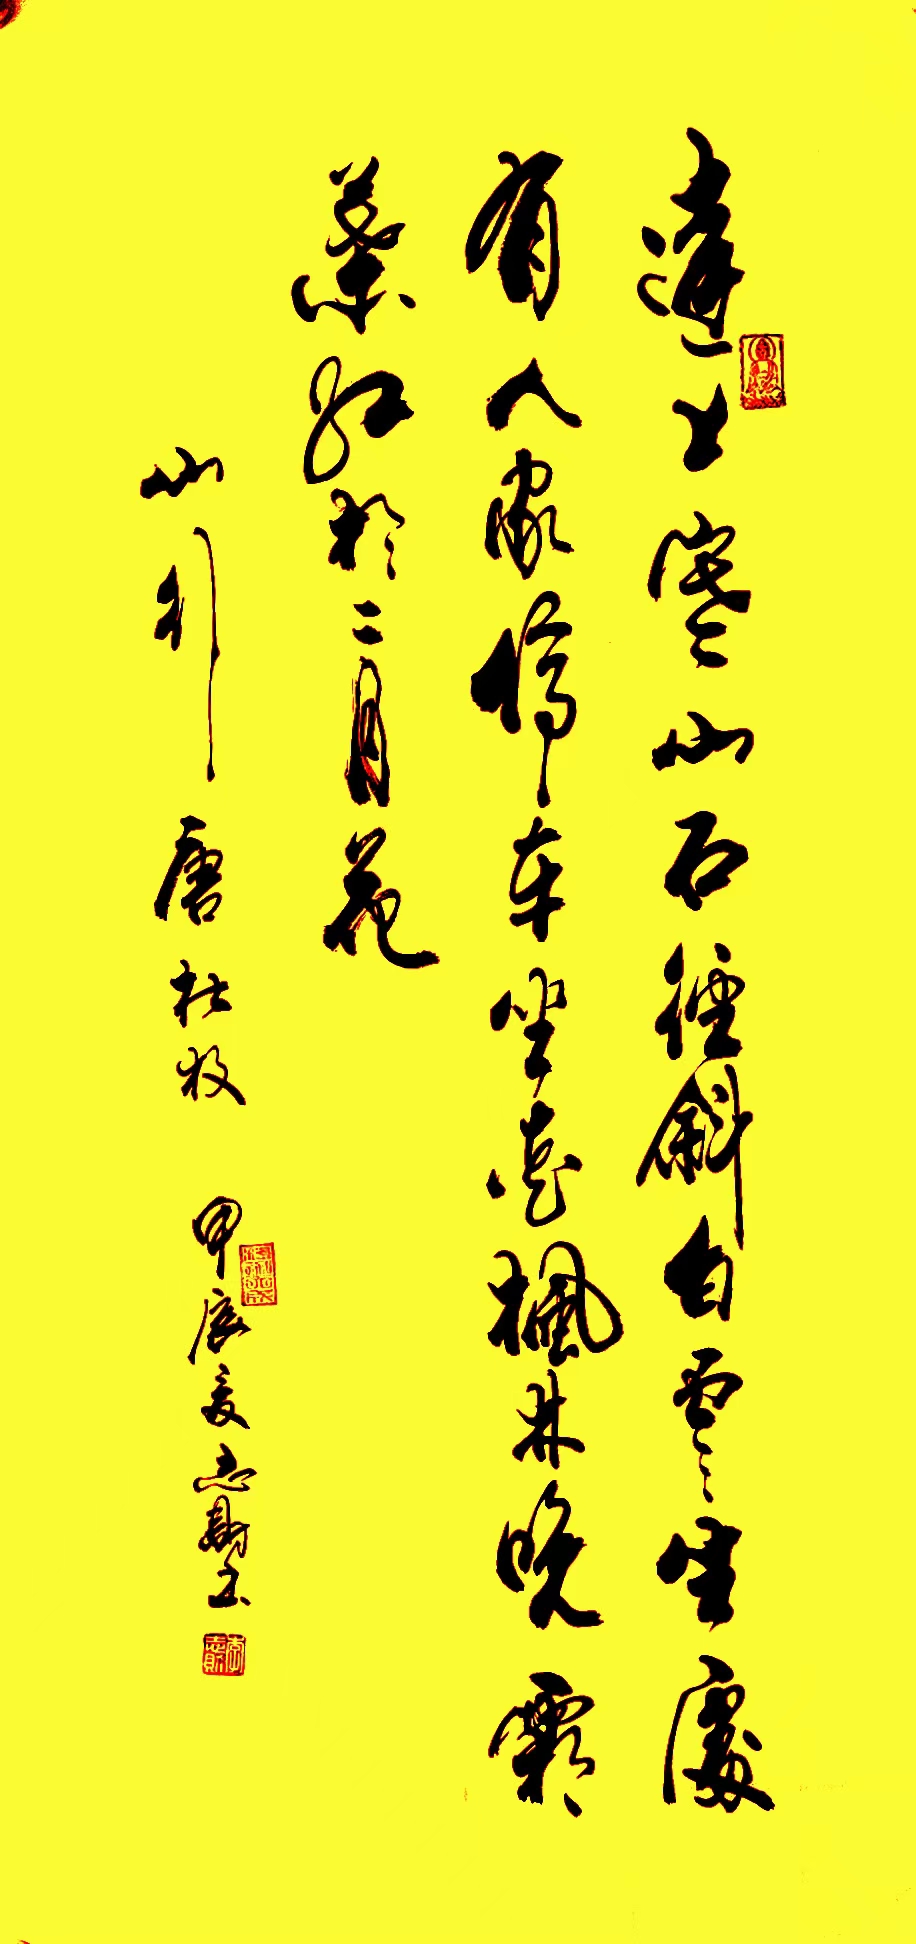 遠上寒山石徑斜白雲生處
有人家停車坐愛楓林晚霜
葉紅於二月花
山行 唐 杜牧 甲辰夏志書